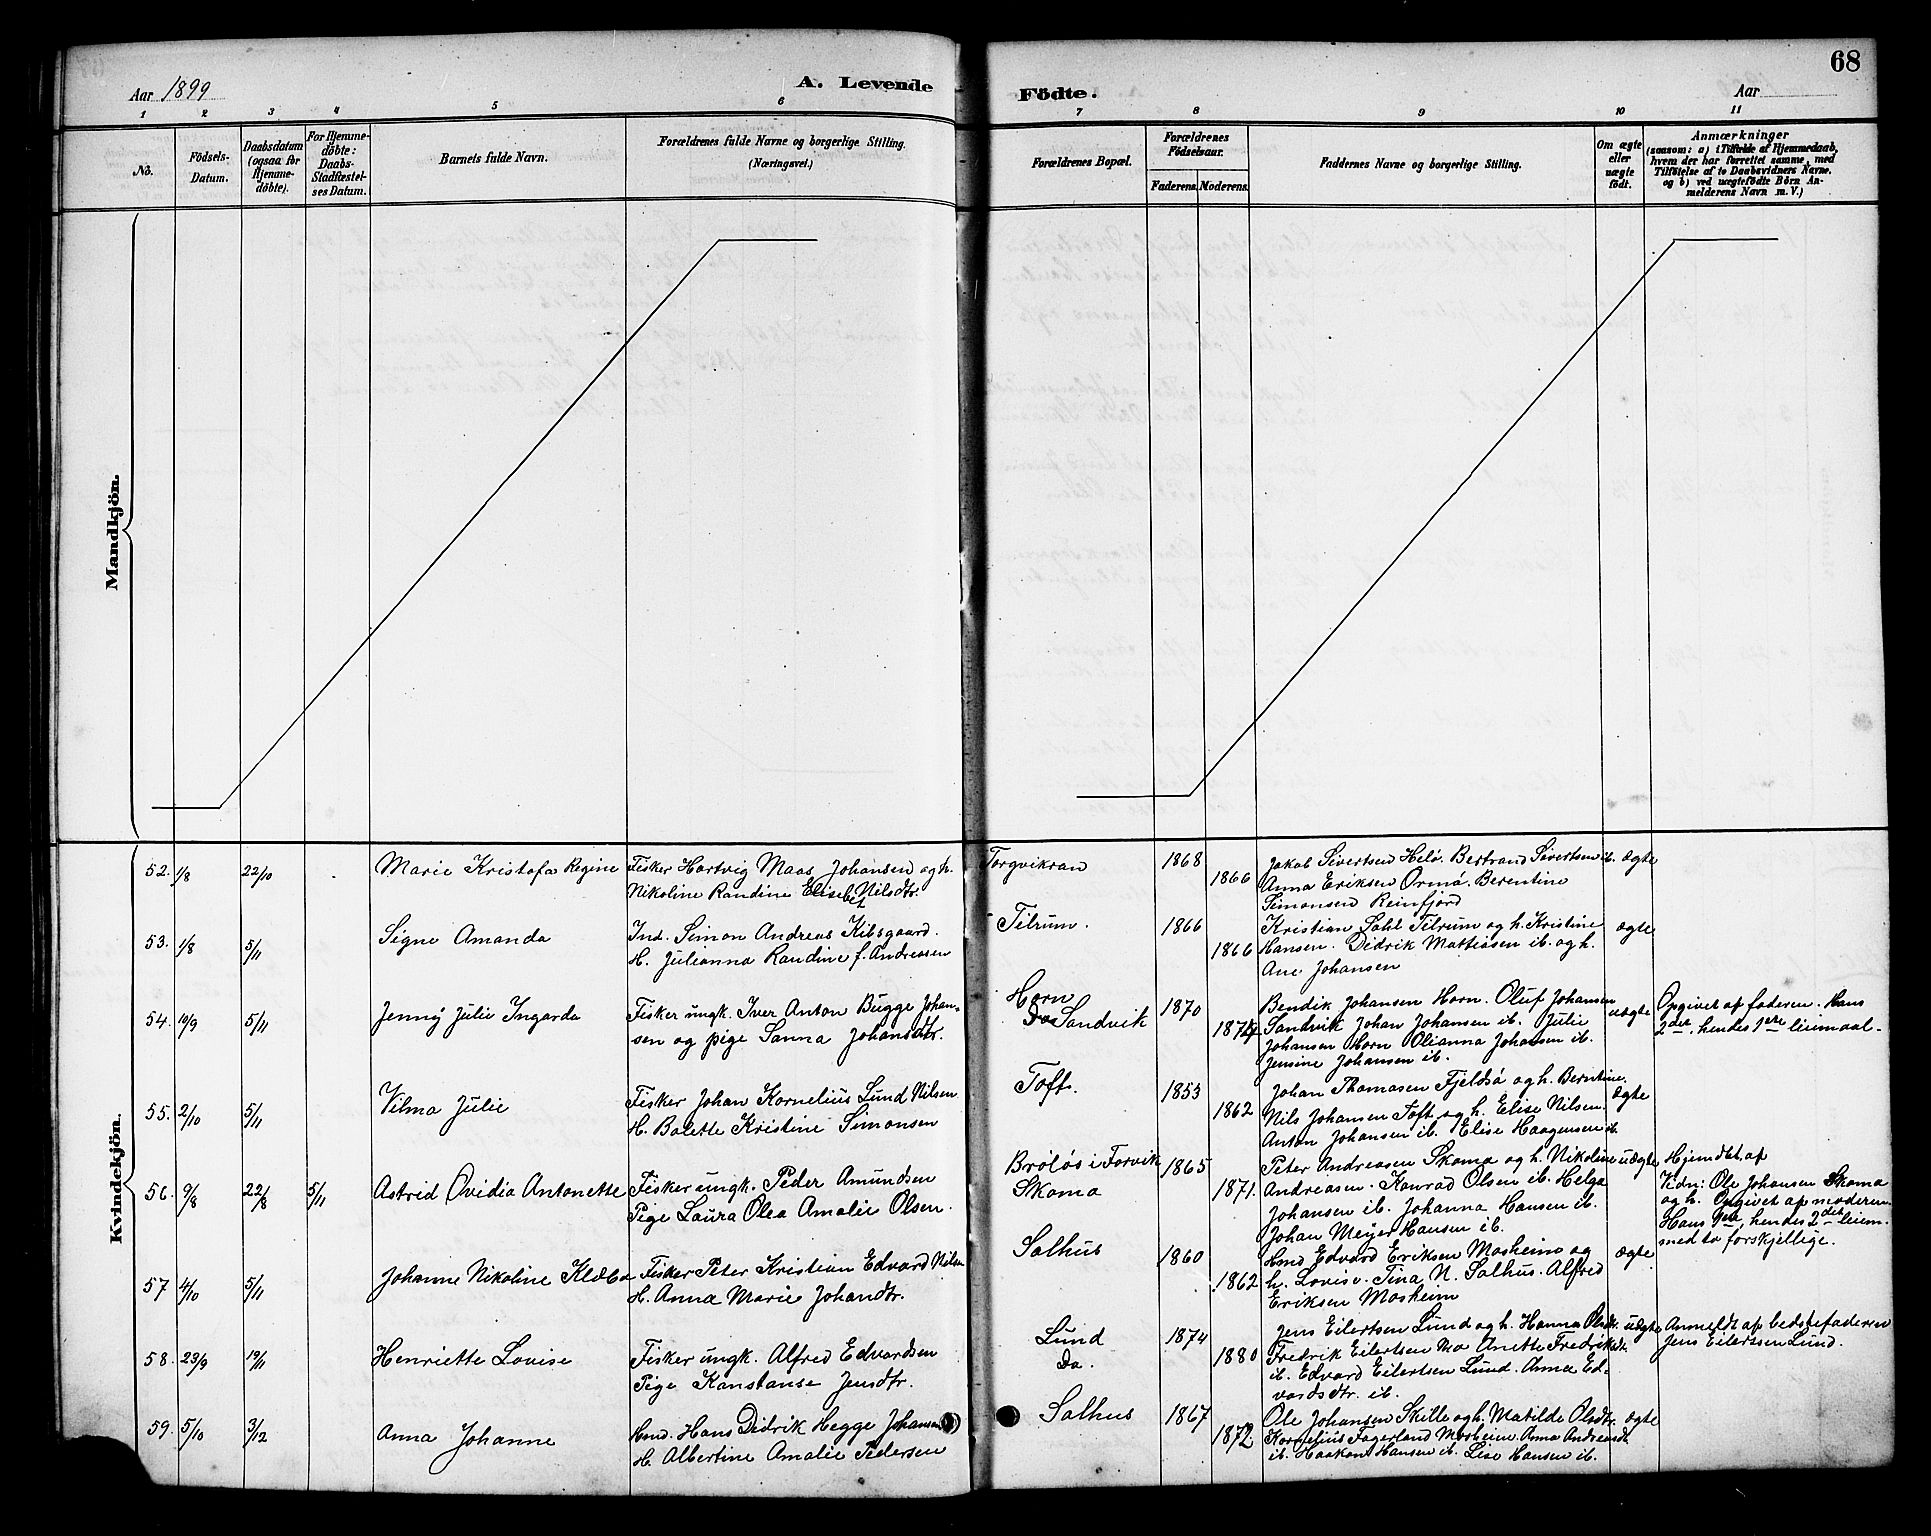 68
Aar 1899
A. Levende Födte.
Aar
1 2 3 4 5 6 7 8 9 10 11
No.
Födsels-
Datum.
Daabsdatum
(ogsaa for
Hjemme-
döbte).
For Hjemme-
döbte:
Daabs-
Stadfæstel-
ses Datum.
Barnets fulde Navn.
Forældrenes fulde Navne og borgerlige Stilling.
(Næringsvei.)
Forældrenes Bopæl.
Forældrenes
Födselsaar.
Faderens. Moderens.
Faddernes Navne og borgerlige Stilling.
Om ægte
eller
uægte
födt.
Anmærkninger
(saasom: a) i Tilfælde af Hjemmedaab,
hvem der har forrettet samme, med
Tilföielse af to Daabsvidners Navne.
og b) ved uægtefödte Börn An-
melderens Navn m. V.)
Mandkjön.
Kvindekjön.
52. 1/8 22/10 Marie Kristofa Regine
Fisker Hartvig Maas Johansen og h.
Nikoline Randine Elisebet Nilsdtr.
Torgvikran
1868
1866
Jakob Sivertsen Helö. Bertrand Sivertsen ib.
Anna Eriksen Ormö. Berentine
Simonsen Reinfjord
ægte
53. 1/8 5/11 Signe Amanda
Ind. Simon Andreas Kilsgaard.
H. Julianna Randine f. Andreasen
Tilrum.
1866
1866
Kristian Dahl Tilrum og h. Kristine
Hansen. Didrik Mattiasen ib. og h.
Ane Johansen
ægte
54. 19/9 5/11 Jenny Julie Ingarda
Fisker ungk. Iver Anton Bugge Johan-
sen og pige Sanna Johansdtr.
Horn
Do Sandvik
1870
1874
Bendik Johansen Horn. Oluf Johansen
Sandvik Johan Johansen ib. Julie
Johansen Horn Olianna Johansen ib.
Jensine Johansen ib.
uægte
Opgivet af faderen. Hans
2den, hendes 1ste leiermaal.
55. 2/10 5/11 Vilma Julie
Fisker Johan Kornelius Lund Nilsen
H. Balette Kristine Simonsen
Toft.
1853
1862
Johan Thomasen Fjeldsö og h. Berntine.
Nils Johansen Toft og h. Elise Nilsen.
Anton Johansen ib. Elise Haagensen ib.
ægte
56. 9/8 22/8 5/11 Astrid Ovidia Antonette
Fisker ungk. Peder Amundsen
Pige Laura Olea Amalie Olsen.
Bröløs i Forvik
Skoma
1865
1871.
Peter Andreasen Skoma og h. Nikoline
Andreasen. Konrad Olsen ib. Helga
Johansen ib. Johanna Hansen ib.
Johan Meyer Hansen ib.
uægte
Hjemdbt. af
Vidn: Ole Johansen Skoma
og h. Opgivet af moderen
Hans 1ste, hendes 2det leierm.
med to forskjellige.
57 4/10 5/11 Johanne Nikoline Klæbo
Fisker Peter Kristian Edvard Nilsen
H. Anna Marie Johandtr.
Salhus
1860
1862
Hmd Edvard Eriksen Mosheim og
h. Lovise. Tina N. Salhus. Alfred
Eriksen Mosheim
ægte
58. 23/9 19/11 Henriette Lovise
Fisker ungk. Alfred Edvardsen
Pige Konstanse Jensdtr.
Lund
Do.
1874
1880
Jens Eilertsen Lund og h. Hanna Olsdtr.
Fredrik Eilertsen Mo Anette Fredriksdtr.
ib. Edvard Eilertsen Lund. Anna Ed-
vardsdtr. ib.
uægte
Anmeldt af bedstefaderen
Jens Eilertsen Lund.
59. 5/10 3/12 Anna Johanne
Hmd. Hans Didrik Hegge Johansen
H. Albertine Amalie Pedersen
Salhus
1867
1872
Ole Johansen Skille og h. Matilde Olsdtr.
Kornelius Fagerland Mosheim. Anna Andreasdtr.
ib. Haakon Hansen ib. Lise Hansen ib.
ægte